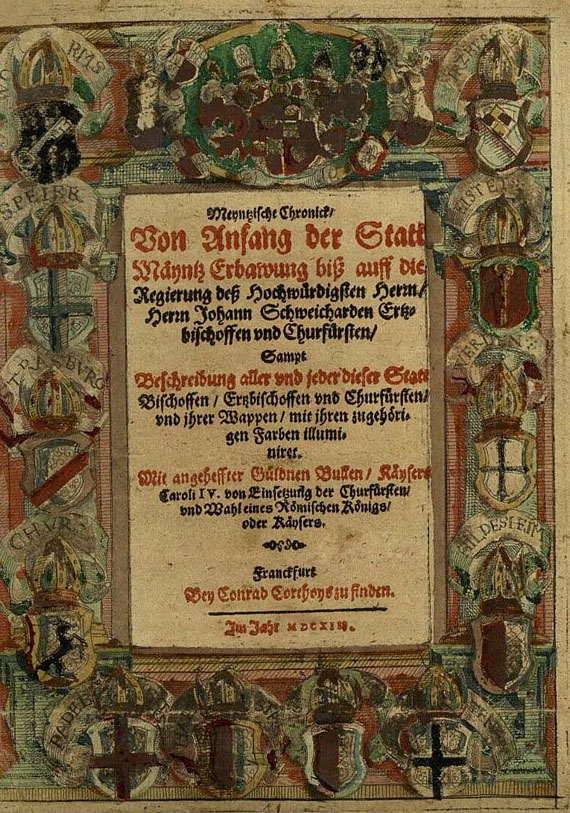 WORMS
WÜRTZB
SPEIER
EISTET
STRASBURG
VERDEN
CHUR
HILDESHEIM
PADERB
Meyntzische Chronick/
Von Anfang der Statt
Mäyntz Erbawung biß auff die
Regierung deß Hochwürdigsten Herrn/
Herrn Johann Schweicharden Ertz-
bischoffen vnd Churfürsten/
Sampt
Beschreibung aller vnd jeder dieser Statt
Bischoffen / Ertzbischoffen vnd Churfürsten/
vnd jhrer Wappen / mit jhren zugehöri-
gen Farben illumi-
niret.
Mit angeheffter Güldnen Bullen / Käysers
Caroli IV. von Einsetzung der Churfürsten/
vnd Wahl eines Römischen Königs/
oder Käysers.
Franckfurt
Bey Conrad Corthoys zu finden.
Im Jahr MDCXIII.